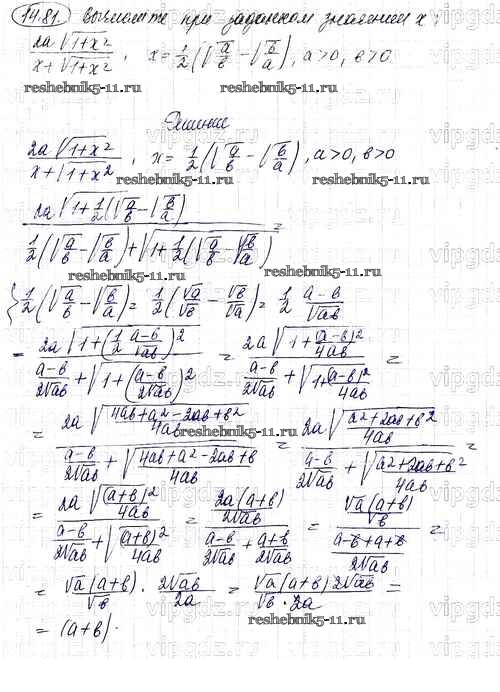 14.81. Вычислите при заданном значении x:
2a√(1+x²) / (x+√(1+x²)), x = 1/2(√(a/b) − √(b/a)), a>0, b>0
reshebnik5-11.ru reshebnik5-11.ru
Решение
2a√(1+x²) / (x+√(1+x²)), x = 1/2(√(a/b) − √(b/a)), a>0, b>0
reshebnik5-11.ru
2a√(1+1/2(√(a/b) − √(b/a))) / (1/2(√(a/b) − √(b/a)) + √(1+1/2(√(a/b) − √(b/a)))) =
reshebnik5-11.ru
{1/2(√(a/b) − √(b/a)) = 1/2(√a/√b − √b/√a) = 1/2 (a−b)/√ab
= 2a√(1+(1/2 (a−b)/√ab)²) / ((a−b)/2√ab + √(1+((a−b)/2√ab)²)) = 2a√(1+(a−b)²/4ab) / ((a−b)/2√ab + √(1+(a−b)²/4ab)) =
= 2a√((4ab+a²−2ab+b²)/4ab) / ((a−b)/2√ab + √((4ab+a²−2ab+b)/4ab)) = 2a√((a²+2ab+b²)/4ab) / ((a−b)/2√ab + √((a²+2ab+b²)/4ab)) =
reshebnik5-11.ru
= 2a√((a+b)²/4ab) / ((a−b)/2√ab + √((a+b)²/4ab)) = (2a(a+b)/2√ab) / ((a−b)/2√ab + (a+b)/2√ab) = (√a(a+b)/√b) / ((a−b+a+b)/2√ab) =
= √a(a+b)/√b · 2√ab/2a = √a(a+b)2√ab / (√b·2a) =
reshebnik5-11.ru
= (a+b).
vipgdz.ru